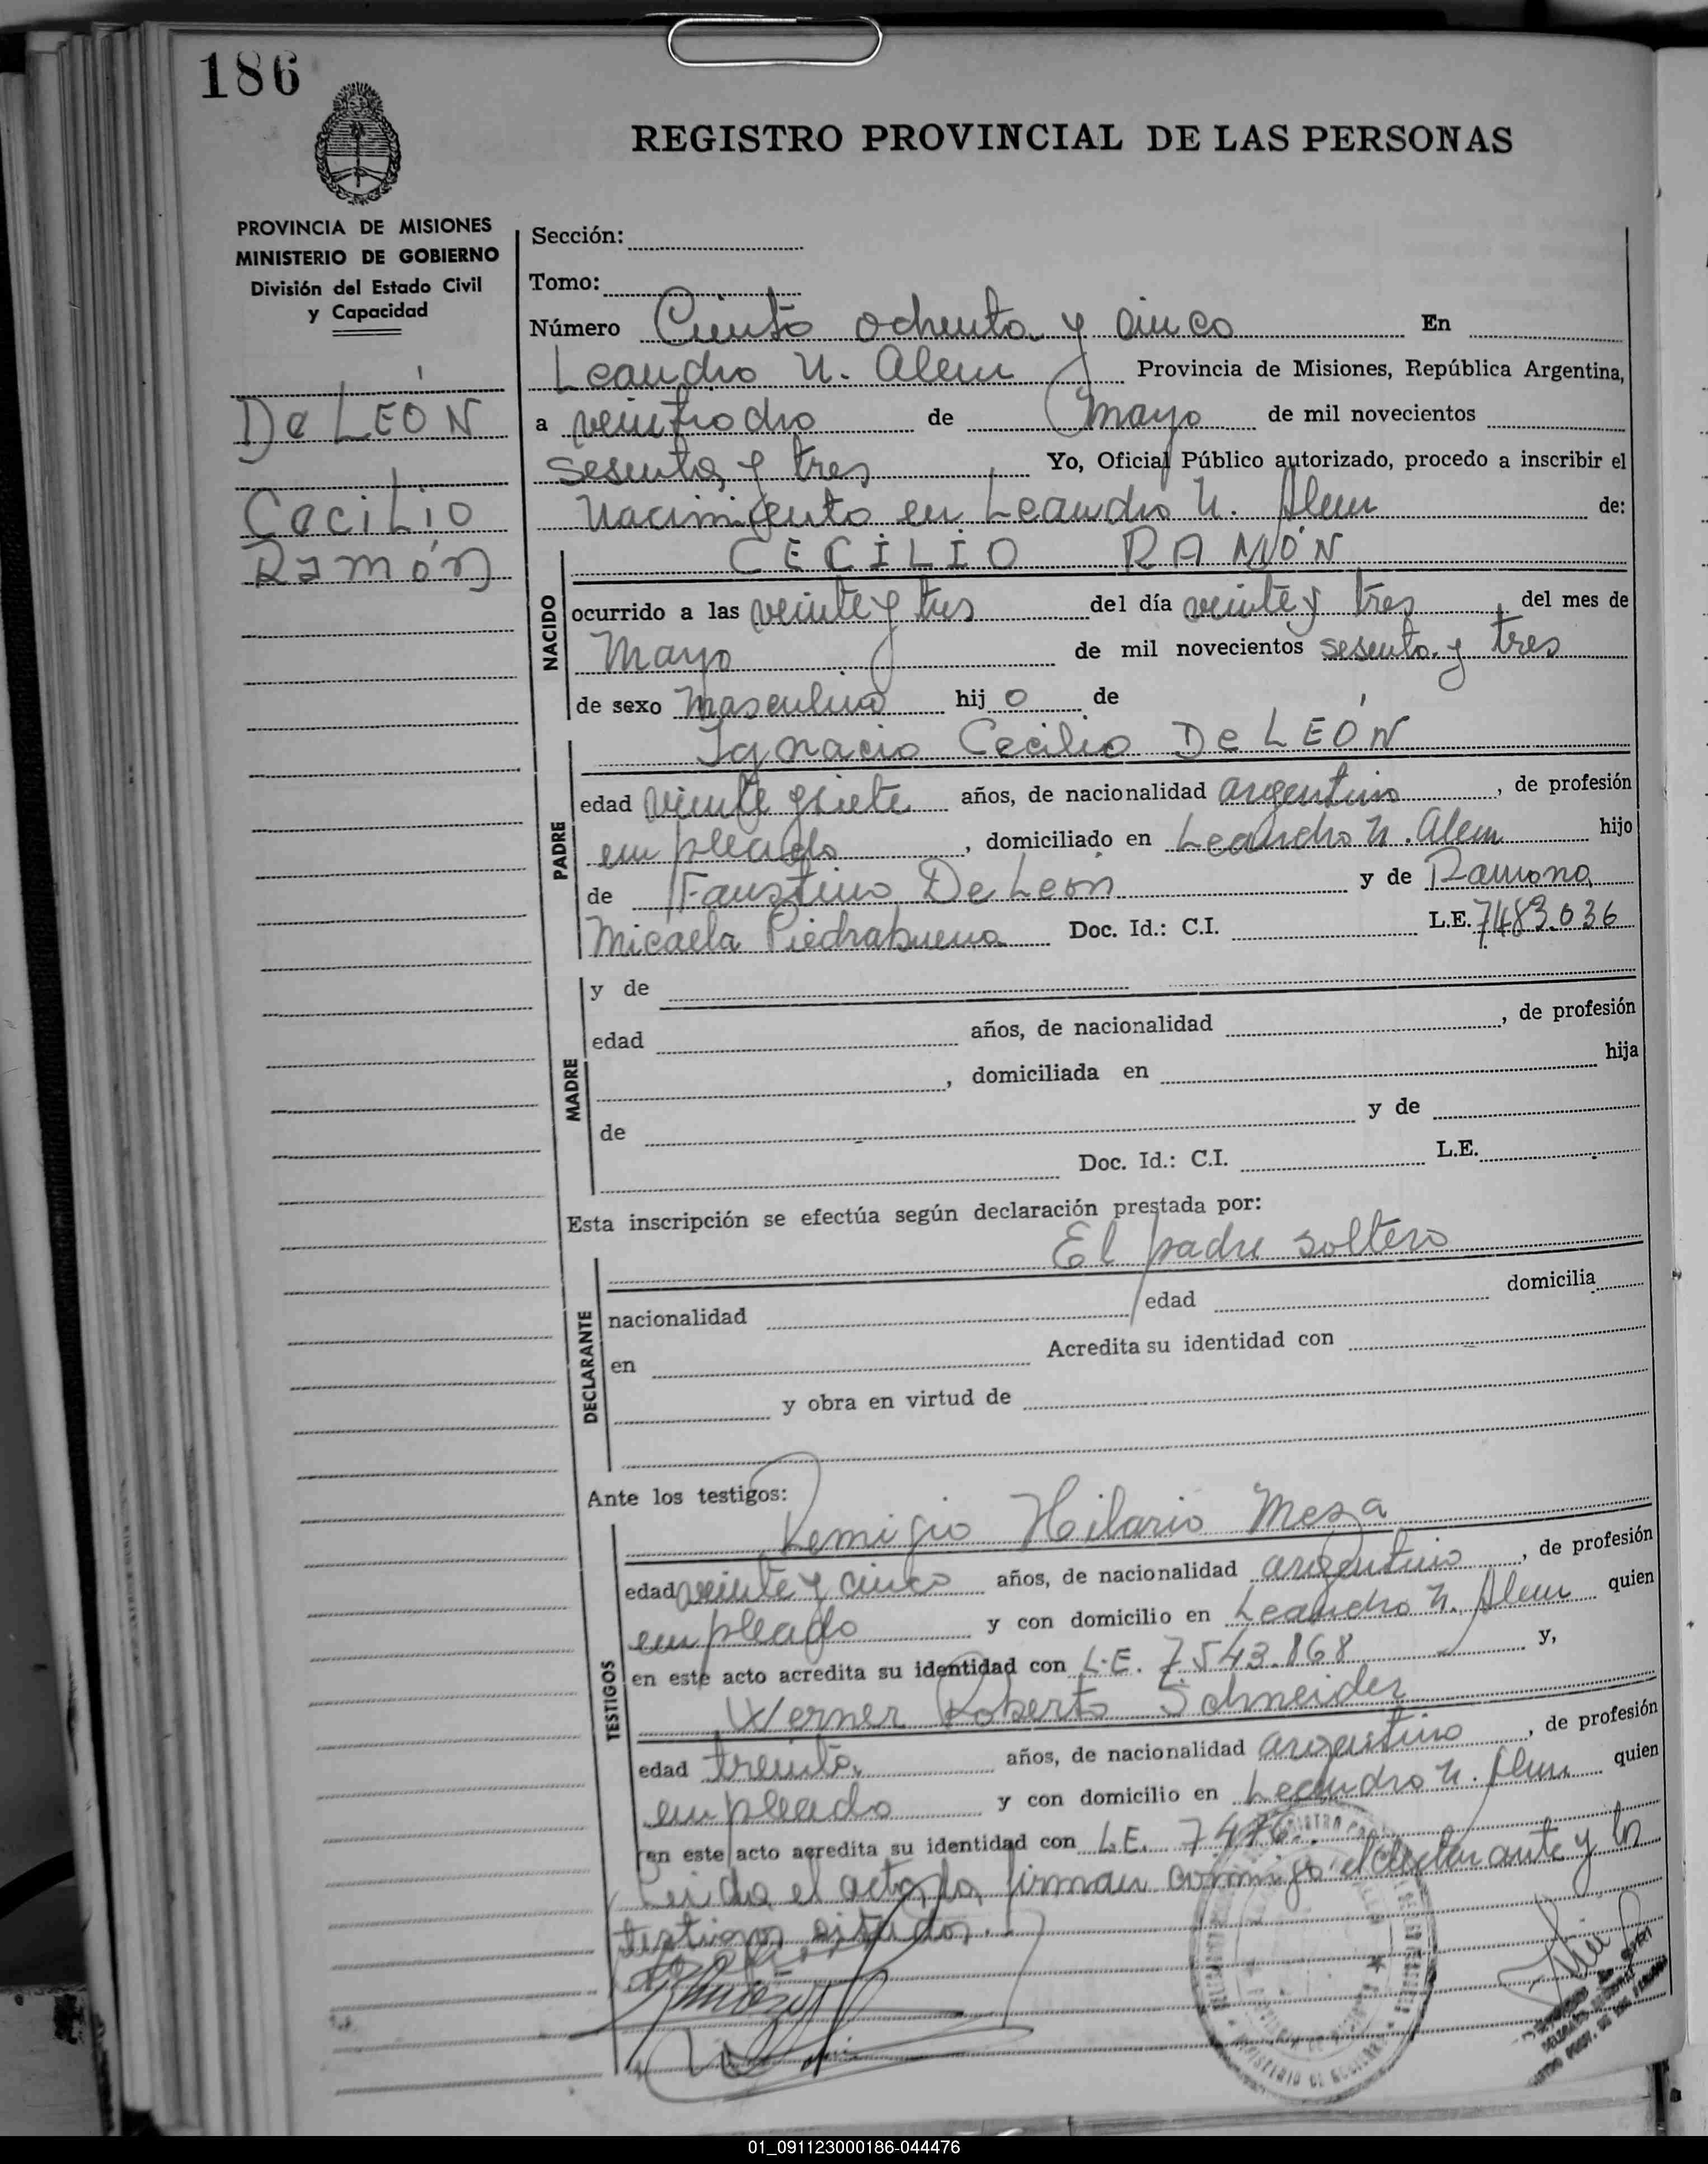 186
REGISTRO PROVINCIAL DE LAS PERSONAS
PROVINCIA DE MISIONES
MINISTERIO DE GOBIERNO
División del Estado Civil
y Capacidad
De LEÓN
Cecilio
Ramón
Sección:
Tomo:
Número Ciento ochenta y cinco En
Leandro N. Alem Provincia de Misiones, República Argentina,
a veintiocho de mayo de mil novecientos
sesenta y tres Yo, Oficial Público autorizado, procedo a inscribir el
Nacimiento en Leandro N. Alem de:
NACIDO
CECILIO RAMÓN
ocurrido a las veinte y tres del día veinte y tres, del mes de
Mayo de mil novecientos sesenta y tres
de sexo Masculino hijo de
PADRE
Ignacio Cecilio De LEÓN
edad veinte y siete años, de nacionalidad argentino, de profesión
empleado, domiciliado en Leandro N. Alem hijo
de Faustino De León y de Ramona
Micaela Piedrabuena Doc. Id.: C.I. L.E. 7483.036
MADRE
y de
edad años, de nacionalidad , de profesión
, domiciliada en hija
de y de
Doc. Id.: C.I. L.E.
Esta inscripción se efectúa según declaración prestada por:
El padre soltero
DECLARANTE
nacionalidad edad domicilia
en Acredita su identidad con
y obra en virtud de
Ante los testigos:
TESTIGOS
Remigio Hilario Meza
edad veinte y cinco años, de nacionalidad argentino, de profesión
empleado y con domicilio en Leandro N. Alem quien
en este acto acredita su identidad con L.E. 7.543.868 y,
Werner Roberto Schneider
edad treinta años, de nacionalidad argentino, de profesión
empleado y con domicilio en Leandro N. Alem quien
en este acto acredita su identidad con L.E.
Leida el acta, la firman conmigo el declarante y los
testigos citados.
01_091123000186-044476